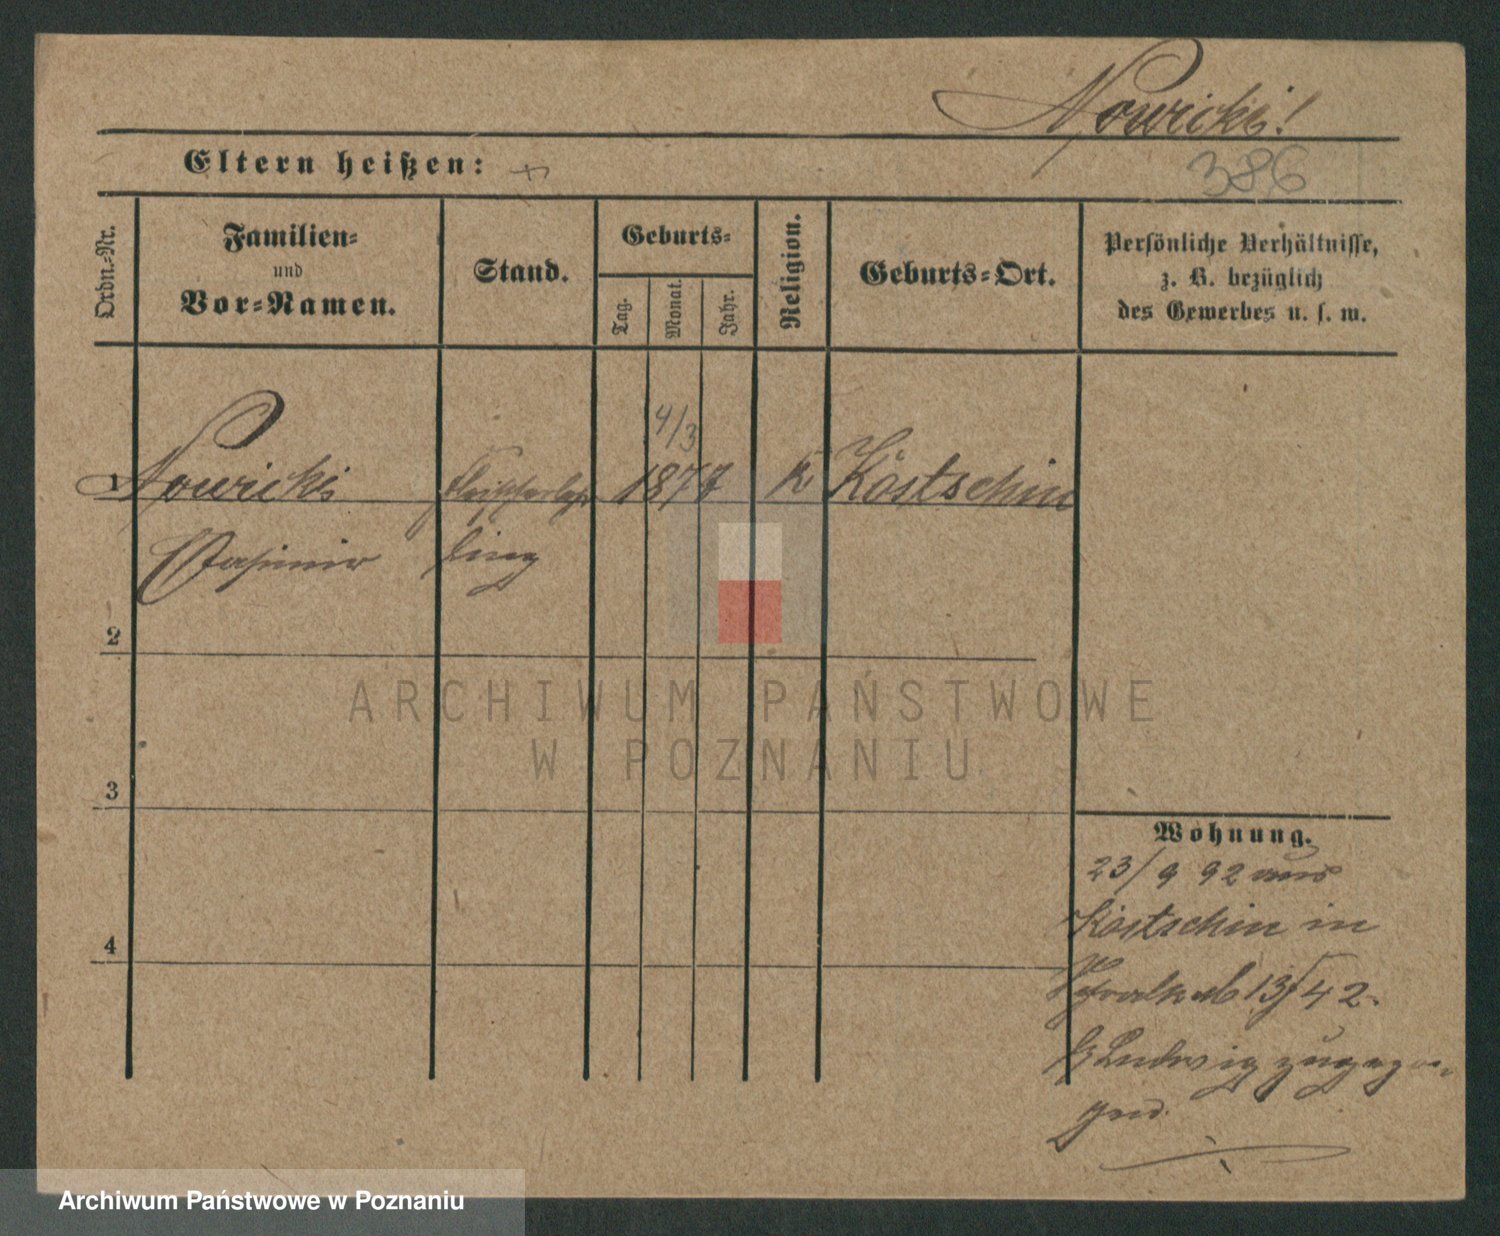 Nowicki!
Eltern heißen: +
386
Ordn.-Nr.
Familien-
und
Vor-Namen.
Stand.
Geburts-
Tag.
Monat.
Jahr.
Religion.
Geburts-Ort.
Persönliche Verhältnisse,
z. B. bezüglich
des Gewerbes u. s. w.
4/3
1 Nowicki Fleischerlehr 1877 K Köstschin
Casimir ling
2
3
4
ARCHIWUM PAŃSTWOWE
W POZNANIU
Wohnung.
23/9 92 aus
Köstschin in
13/42
Ludwig zugezo-
gen.
Archiwum Państwowe w Poznaniu